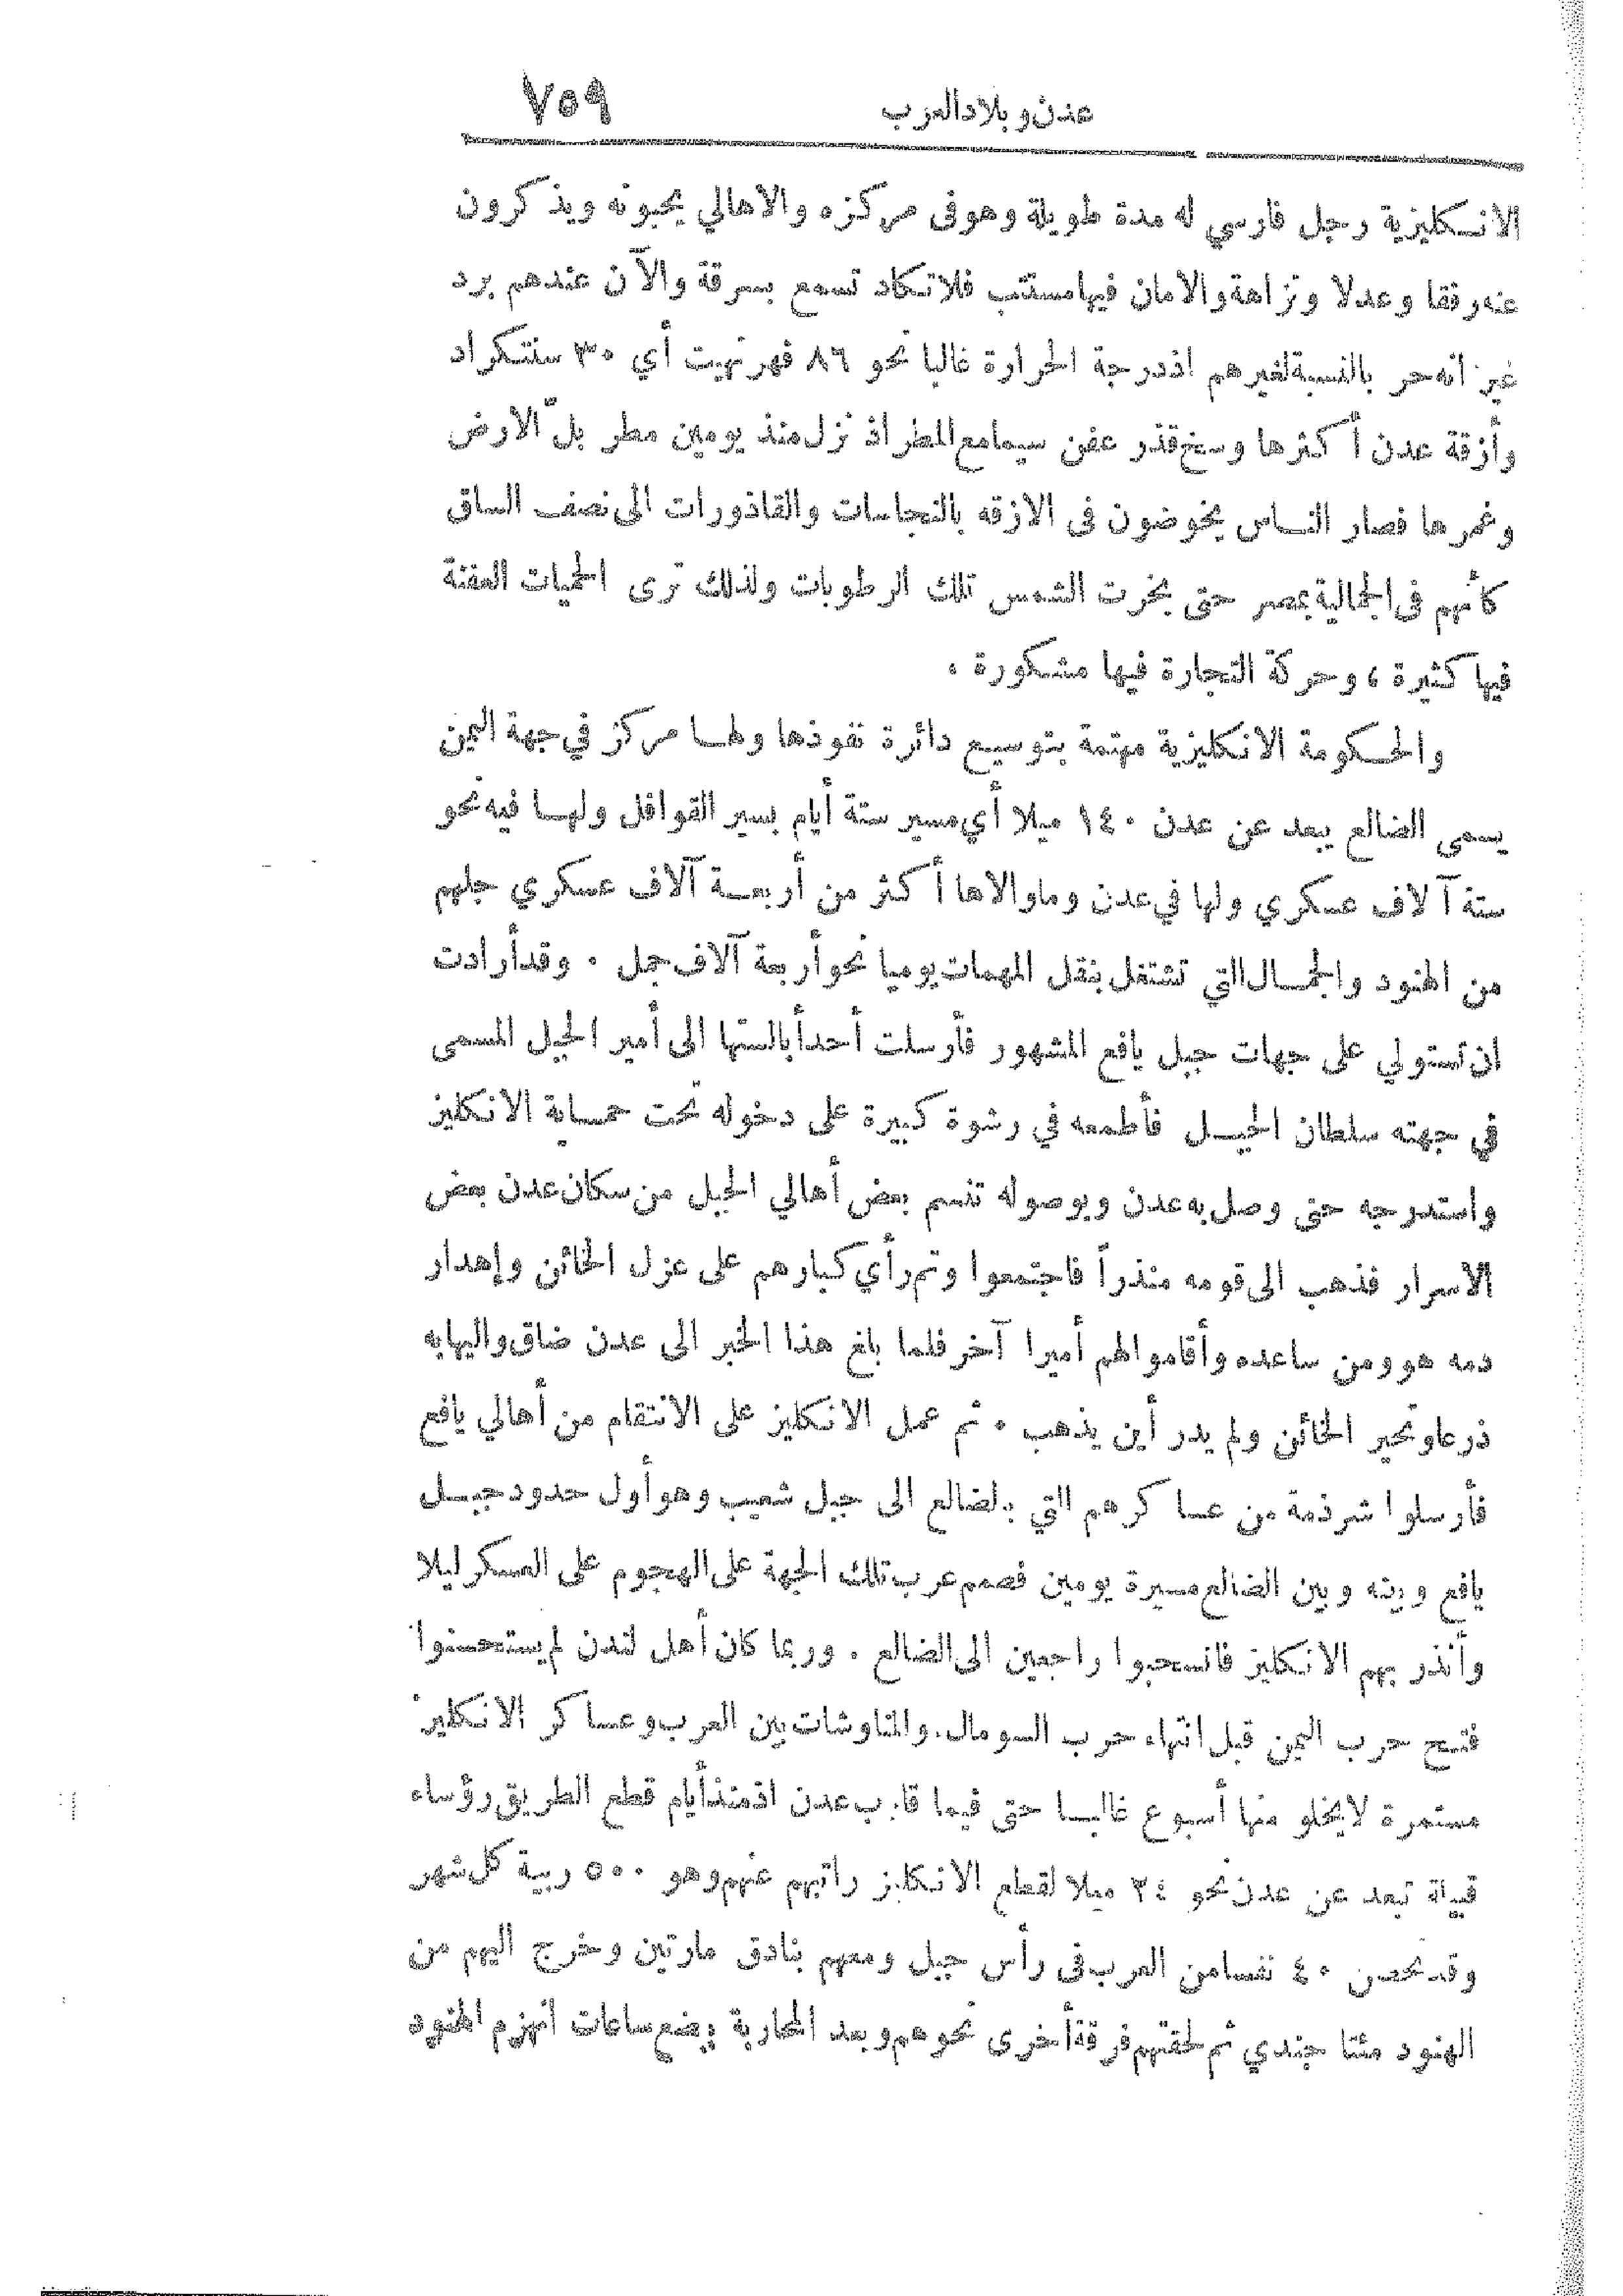 عدن وبلاد العرب ٧٥٩
الانكليزية رجل فارسي له مدة طويلة وهو في مركزه والاهالي يحبونه ويذكرون
عنه رفقا وعدلا ونزاهة والامان فيها مستتب فلا تكاد تسمع بسرقة والآن عندهم برد
غير انه حر بالنسبة لغيرهم اذ درجة الحرارة غالبا نحو ٨٦ فهرنهيت أي ٣٠ سنتكراد
وأزقة عدن أكثرها وسخ قذر عفن سيما مع المطر اذ نزل منذ يومين مطر بلّ الارض
وغمرها فصار الناس يخوضون في الازقه بالنجاسات والقاذورات الى نصف الساق
كأنهم في الجمالية بمصر حتى بخرت الشمس تلك الرطوبات ولذلك ترى الحميات العفنة
فيها كثيرة ، وحركة التجارة فيها مشكورة .
والحكومة الانكليزية مهتمة بتوسيع دائرة نفوذها ولها مركز في جهة اليمن
يسمى الضالع يبعد عن عدن ١٤٠ ميلا أي مسير ستة أيام بسير القوافل ولها فيه نحو
ستة آلاف عسكري ولها في عدن وما والاها أكثر من أربعة آلاف عسكري جلهم
من الهنود والجمال التي تشتغل بنقل المهمات يوميا نحو أربعة آلاف جمل . وقد أرادت
ان تستولي على جهات جبل يافع المشهور فأرسلت أحدأبالستها الى أمير الجبل المسمى
في جهته سلطان الجبل فأطمعه في رشوة كبيرة على دخوله تحت حماية الانكليز
واستدرجه حتى وصل به عدن وبوصوله تنسم بعض أهالي الجبل من سكان عدن بعض
الاسرار فذهب الى قومه منذراً فاجتمعوا وتم رأي كبارهم على عزل الخائن وإهدار
دمه هو ومن ساعده وأقاموا لهم أميرا آخر فلما بلغ هذا الخبر الى عدن ضاق واليها به
ذرعا وتحير الخائن ولم يدر أين يذهب . ثم عمل الانكليز على الانتقام من أهالي يافع
فأرسلوا شرذمة من عساكرهم التي بالضالع الى جبل شعيب وهو أول حدود جبل
يافع وبينه وبين الضالع مسيرة يومين فصمم عرب تلك الجهة على الهجوم على العسكر ليلا
وأنذر بهم الانكليز فانسحبوا راجعين الى الضالع . وربما كان أهل لندن لم يستحسنوا
فتح حرب اليمن قبل انتهاء حرب السومال. والمناوشات بين العرب وعساكر الانكليز
مستمرة لا يخلو منها أسبوع غالبا حتى فيما قارب عدن اذ منذ أيام قطع الطريق رؤساء
قبيلة تبعد عن عدن نحو ٣٤ ميلا لقطع الانكليز راتبهم عنهم وهو ٥٠٠ ربية كل شهر
وقد تحصن ٤٠ نفسا من العرب في رأس جبل ومعهم بنادق مارتين وخرج اليهم من
الهنود مئتا جندي ثم لحقتهم فرقة أخرى نحوهم وبعد المحاربة بضع ساعات انهزم الهنود